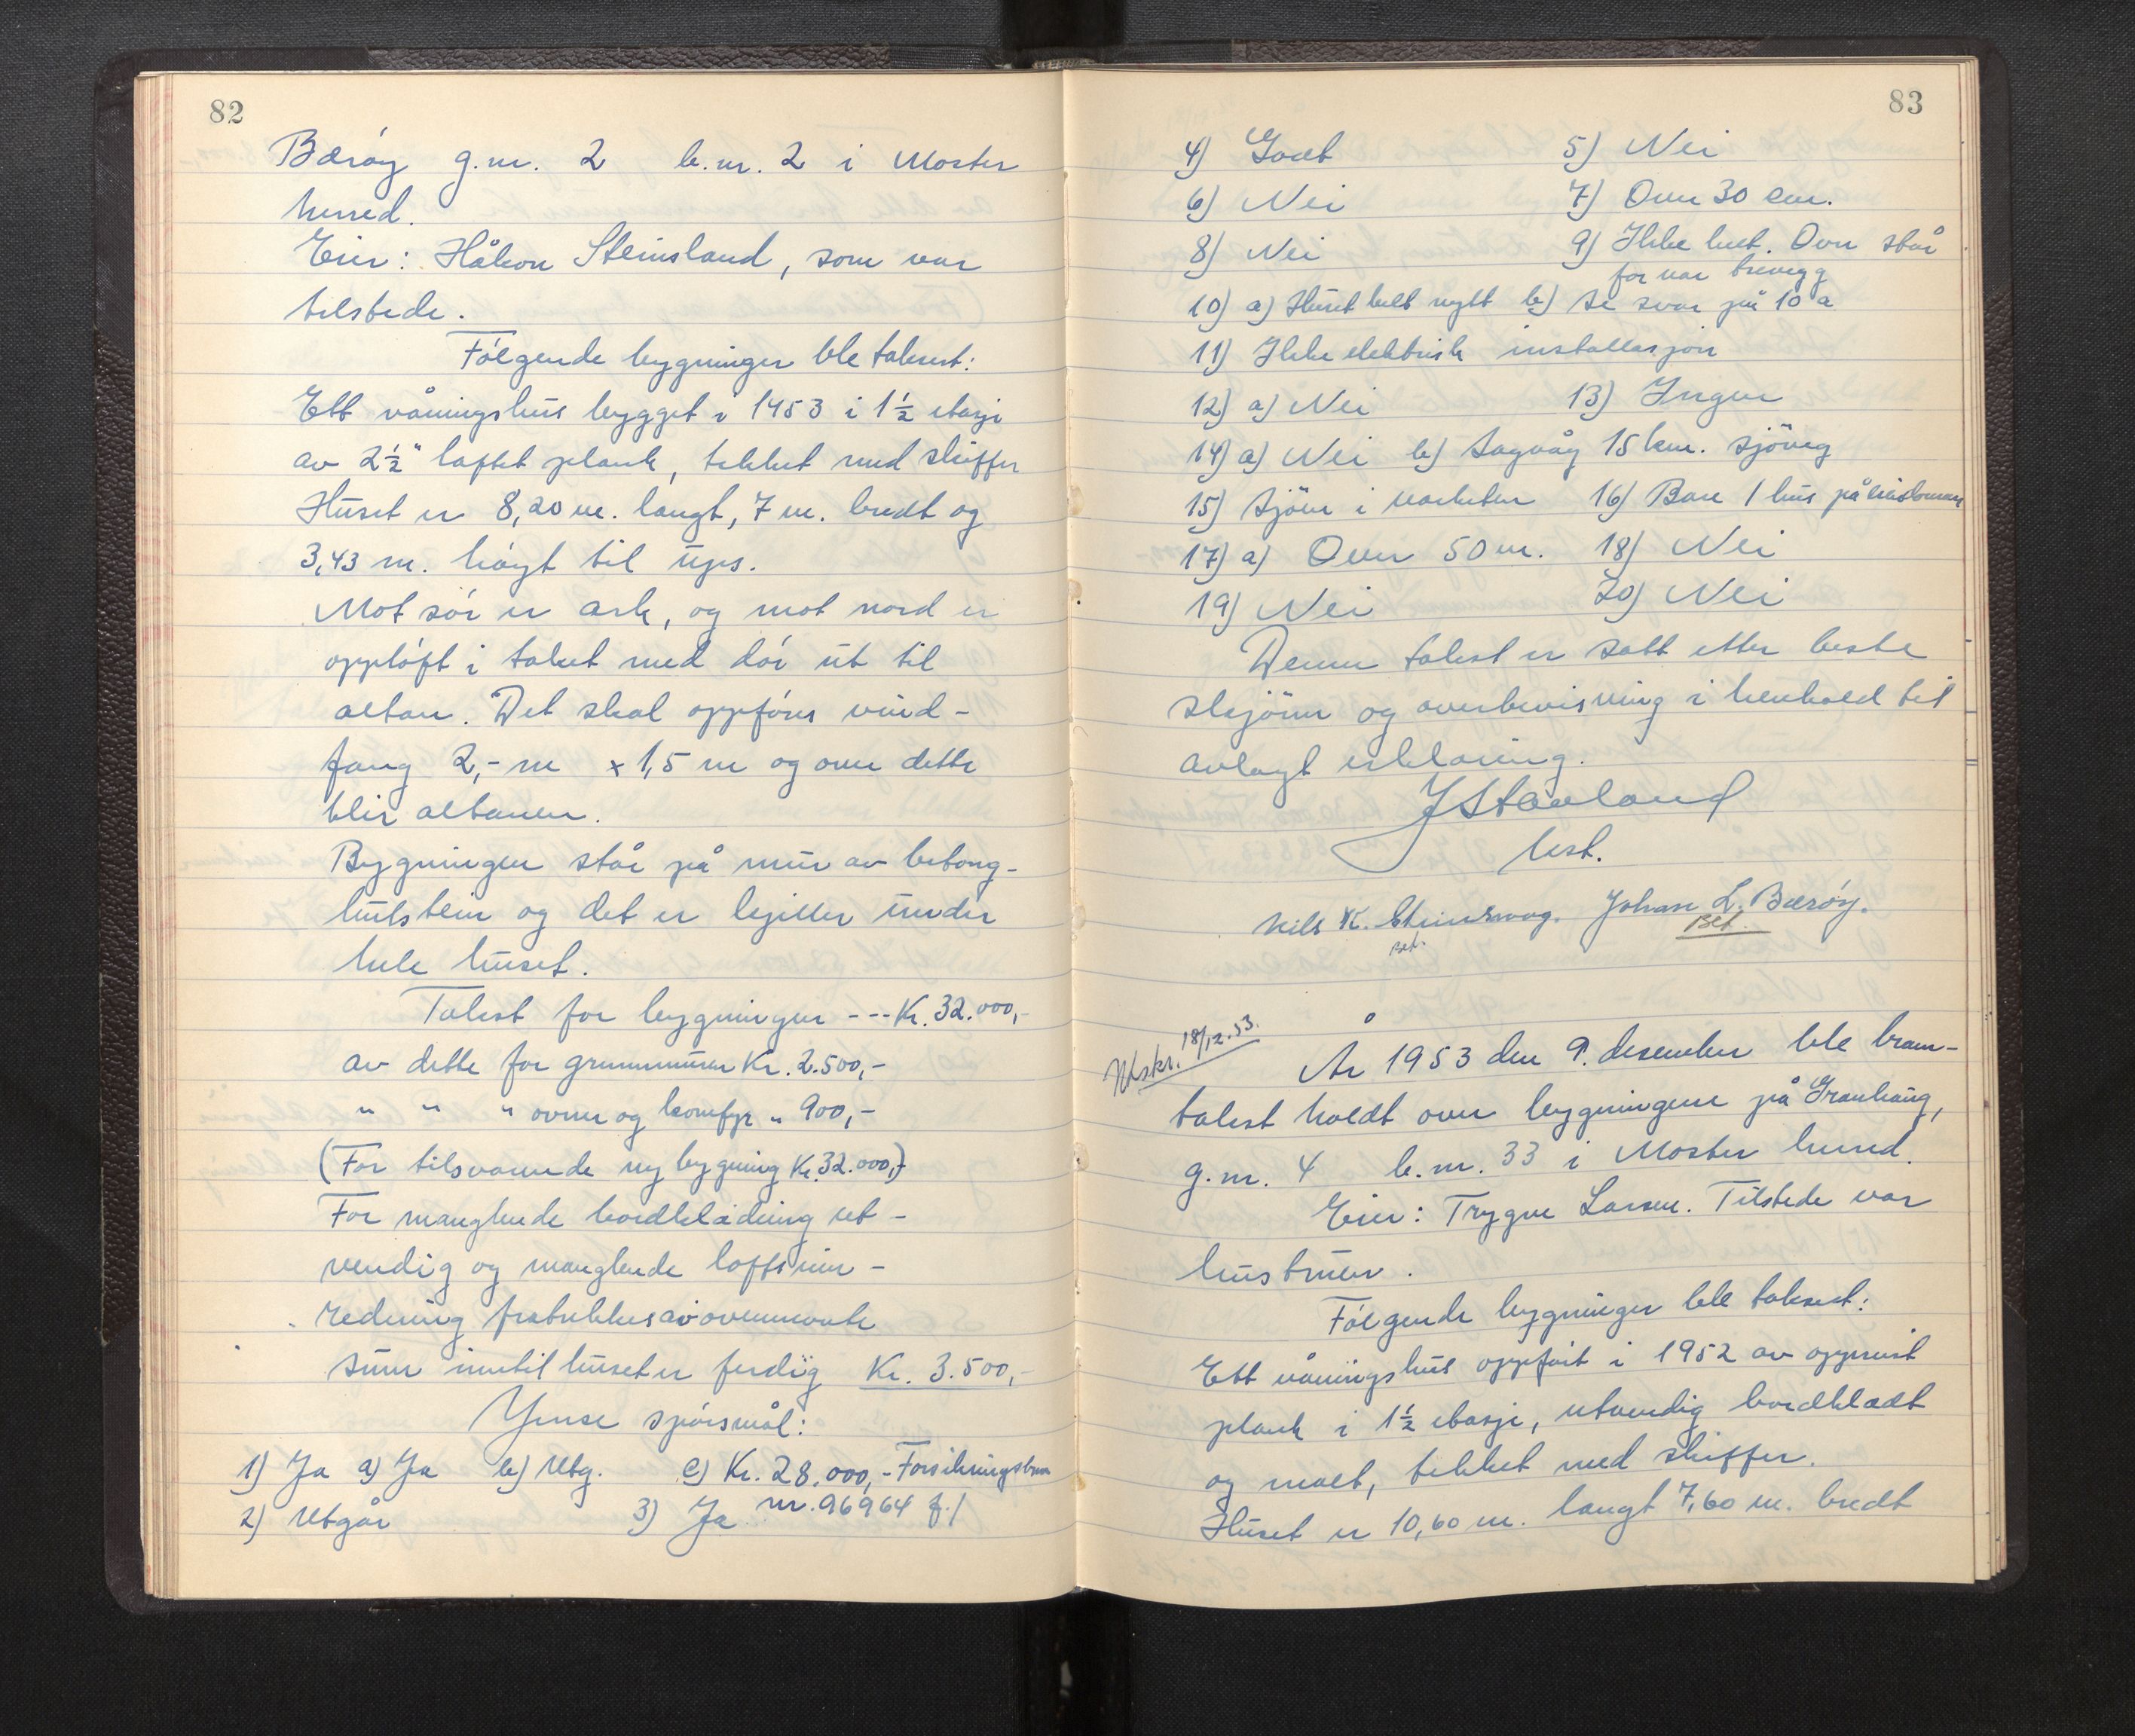 82
Bærøy g.nr. 2 b.nr. 2 i Moster
herred.
Eier: Håkon Steinsland, som var
tilstede.
Følgende bygninger ble taksert:
Ett våningshus bygget i 1953 i 1½ etasje
av 2½" laftet plank, tekket med skiffer
Huset er 8,20 m. langt, 7 m. bredt og
3,43 m. høyt til ups.
Mot sør er ark, og mot nord er
oppløft i taket med dør ut til
altan. Det skal oppføres vind-
fang 2,- m x 1,5 m og over dette
blir altanen.
Bygningen står på mur av betong-
hulstein og det er kjeller under
hele huset.
Takst for bygningen --- Kr. 32.000,-
av dette for grunnmuren Kr. 2.500,-
" " " ovner og komfyr " 900,-
(For tilsvarende ny bygning Kr. 32.000,-)
For manglende bordkledning ut-
vendig og manglende loftsinn-
redning fratrekkes av ovennevnte
sum inntil huset er ferdig Kr. 3.500,-
Ymse spørsmål:
1) Ja a) Ja b) Utg. c) Kr. 28.000,- Forsikringsbev
nr. 96964 f./
2) Utgår 3) Ja
83
4) Godt 5) Nei
6) Nei 7) Over 30 cm.
8) Nei 9) Ikke helt. Ovn står
for nær trevegg
10) a) Huset helt nytt b) Se svar på 10 a
11) Ikke elektrisk installasjon
12) a) Nei 13) Ingen
14) a) Nei b) Sagvåg 15 km. sjøveg
15) Sjøen i nærheten 16) Bare 1 hus på eiendommen
17) a) Over 50 m. 18) Nei
19) Nei 20) Nei
Denne takst er satt etter beste
skjønn og overbevisning i henhold til
avlagt erklæring.
J Stavland
lest.
Nils K. Steinsvaag. Johan L. Bærøy.
Bet. Bet.
Utskr. 18/12.53.
År 1953 den 9. desember ble brann-
takst holdt over bygningene på Granhaug,
g.nr. 4 b.nr. 33 i Moster herred.
Eier: Trygve Larsen. Tilstede var
hustruen.
Følgende bygninger ble taksert:
Ett våningshus oppført i 1952 av oppreist
plank i 1½ etasje, utvendig bordkledt
og malt, tekket med skiffer.
Huset er 10,60 m. langt 7,60 m. bredt